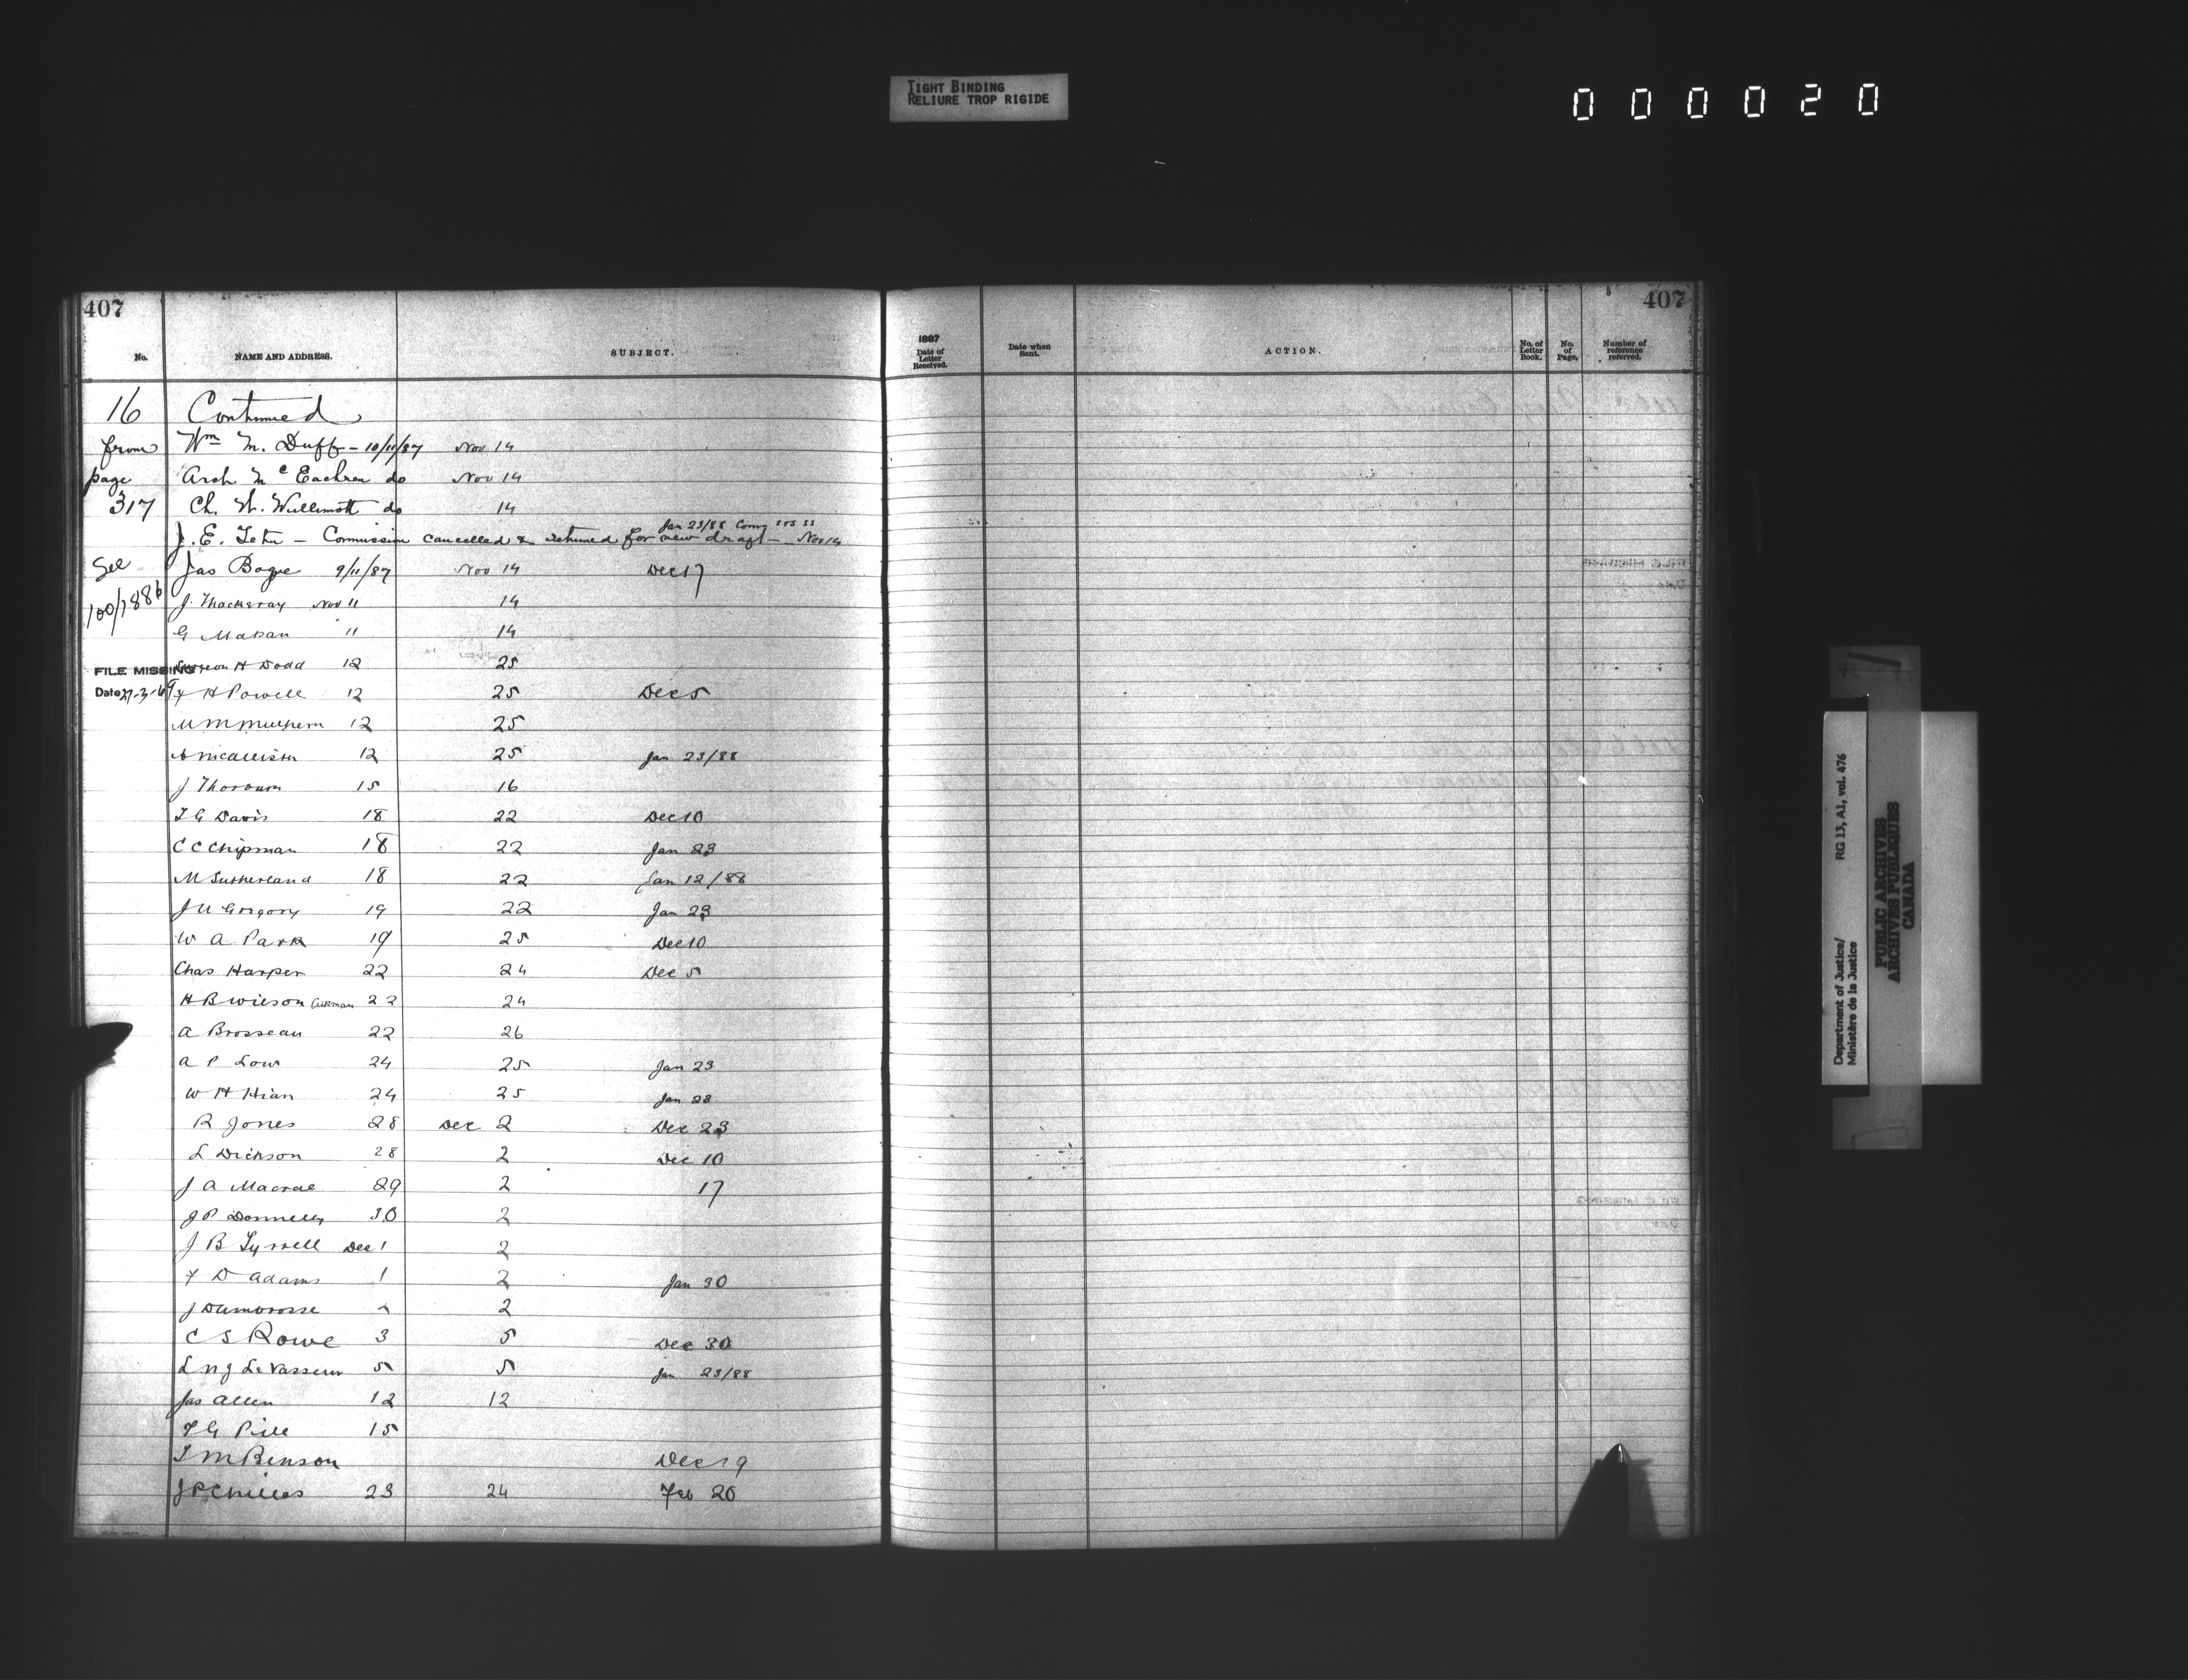 TIGHT BINDING
RELIURE TROP RIGIDE
000020
407
No. NAME AND ADDRESS. SUBJECT.
16 Continued
from Wm M. Duff - 10/11/87 Nov 14
page Arch McEachren do Nov 14
317 Ch. W. Willimott do 14
Jan 23/88
J. E. Tetu - Commission cancelled & returned for new draft - Nov 14
See Jas Bogue 9/11/87 Nov 14 Dec 17
100/1886 J. Thackeray Nov 11 14
G Makan 11 14
FILE MISSING H Dodd 12 25
Date 27-3-69 H Powell 12 25 Dec 5
12 25
A McAllister 12 25 Jan 23/88
J Thorburn 15 16
T G Davis 18 22 Dec 10
C C Chipman 18 22 Jan 23
M Sutherland 18 22 Jan 12/88
J U Gregory 19 22 Jan 23
W A Park 19 25 Dec 10
Chas Harper 22 24 Dec 5
H B Wilson 22 24
A Brosseau 22 26
A P Low 24 25 Jan 23
W H 24 25 Jan 23
R Jones 28 Dec 2 Dec 23
L Dickson 28 2 Dec 10
J A Macrae 29 2 17
J P Donnelly 30 2
J B Tyrrell Dec 1 2
F D Adams 1 2 Jan 30
J 2 2
C S Rowe 3 5 Dec 30
L N J LeVasseur 5 5 Jan 23/88
Jas Allen 12 12
15
T M Benson Dec 19
23 24 Feb 20
407
1887
Date of Letter Received. Date when Sent. ACTION. No. of Letter Book. No. of Page. Number of reference referred.
Department of Justice/ RG 13, A1, vol. 476
Ministère de la Justice
PUBLIC ARCHIVES
ARCHIVES PUBLIQUES
CANADA